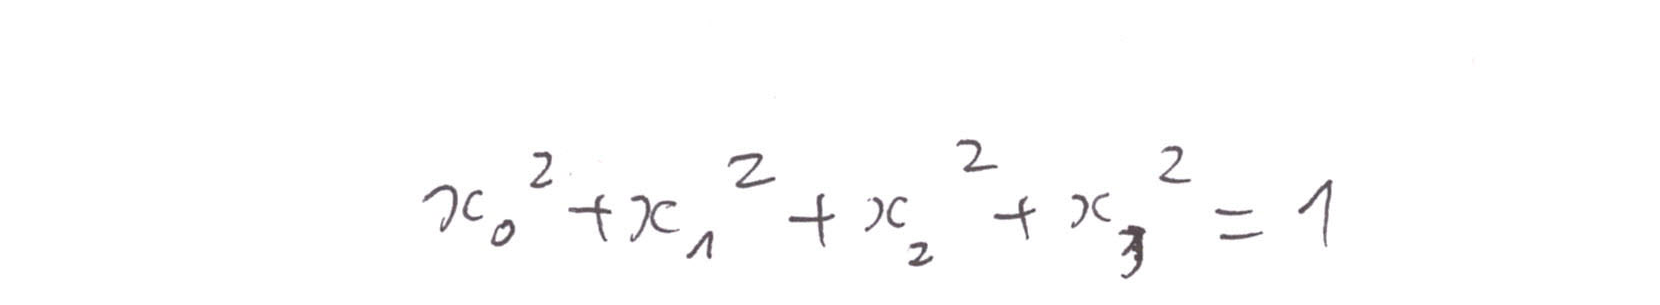 x₀² + x₁² + x₂² + x₃² = 1